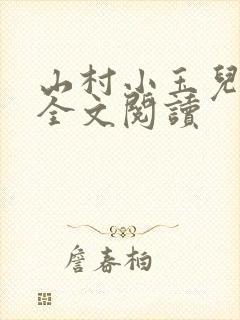 山村小玉兒
全文閱讀
詹春柏